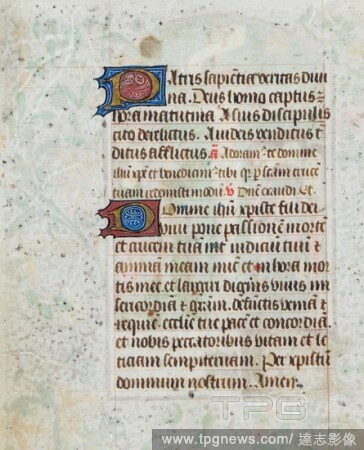 Patris sapientia veritas divi
na. Deus homo captus e
hora matutina A suis discipulis
cito derelictus. A iudeis venditus t
ditus afflictus a Adoram te domine
ihu xpe et benedicim tibi q p scam cruce
tuam redemisti mūdū v Dne exaudi. Et
Domine ihu xpiste fili dei
vivi pone passionē mortē
et crucem tuā int iudiciū tuū et
animam meam nūc et in hora mor
tis mee. et largiri digneris vivis mi
sericordiā et grām. defūctis veniā et
requie. ecclie tue pacē et concordiā.
et nobis peccatoribus vitam et le
ticiam sempiternam. Per xpistū
dominum nostrum. Amen.
TPG
www.tpgnews.com/ 達志影像